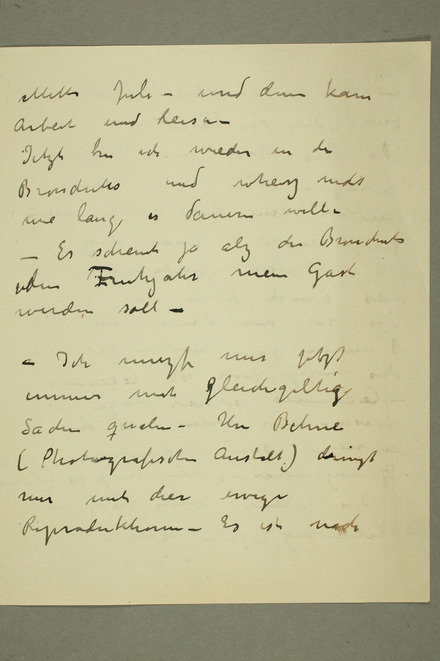 Mitte Juli – und dann kam
Arbeit und Reise –
Jetzt bin ich wieder in der
Bronchitis und nicht
wie lang es dauern will –
– Es scheint ja als die Bronchitis
jedem Frühjahr mein Gast
werden soll –
– Ich muß nur jetzt
immer mit gleichgiltig
Sachen quälen – Herr Behne
(Photografischen Anstalt) drängt
mir mit den
Reproduktionen – Es ist nach